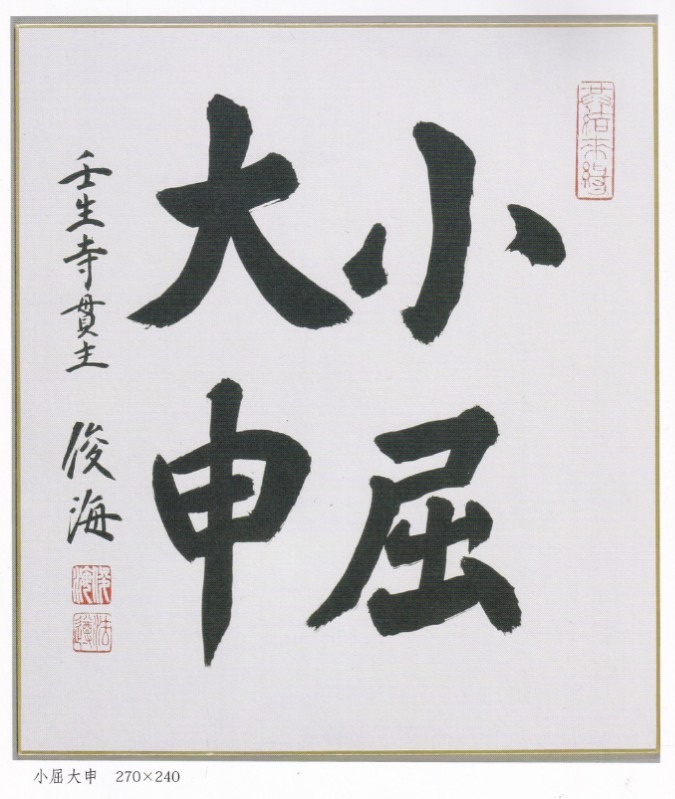 小屈
大申
壬生寺貫主 俊海
小屈大申 270×240